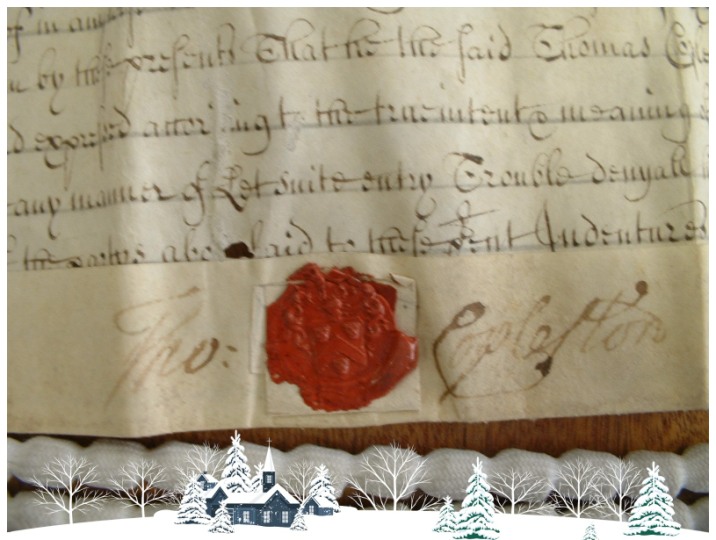 by these presents That he the said Thomas
according to the true intent & meaning
any manner of Let suite entry Trouble denyall
the parties above said to these Indentures
Tho: Copleston